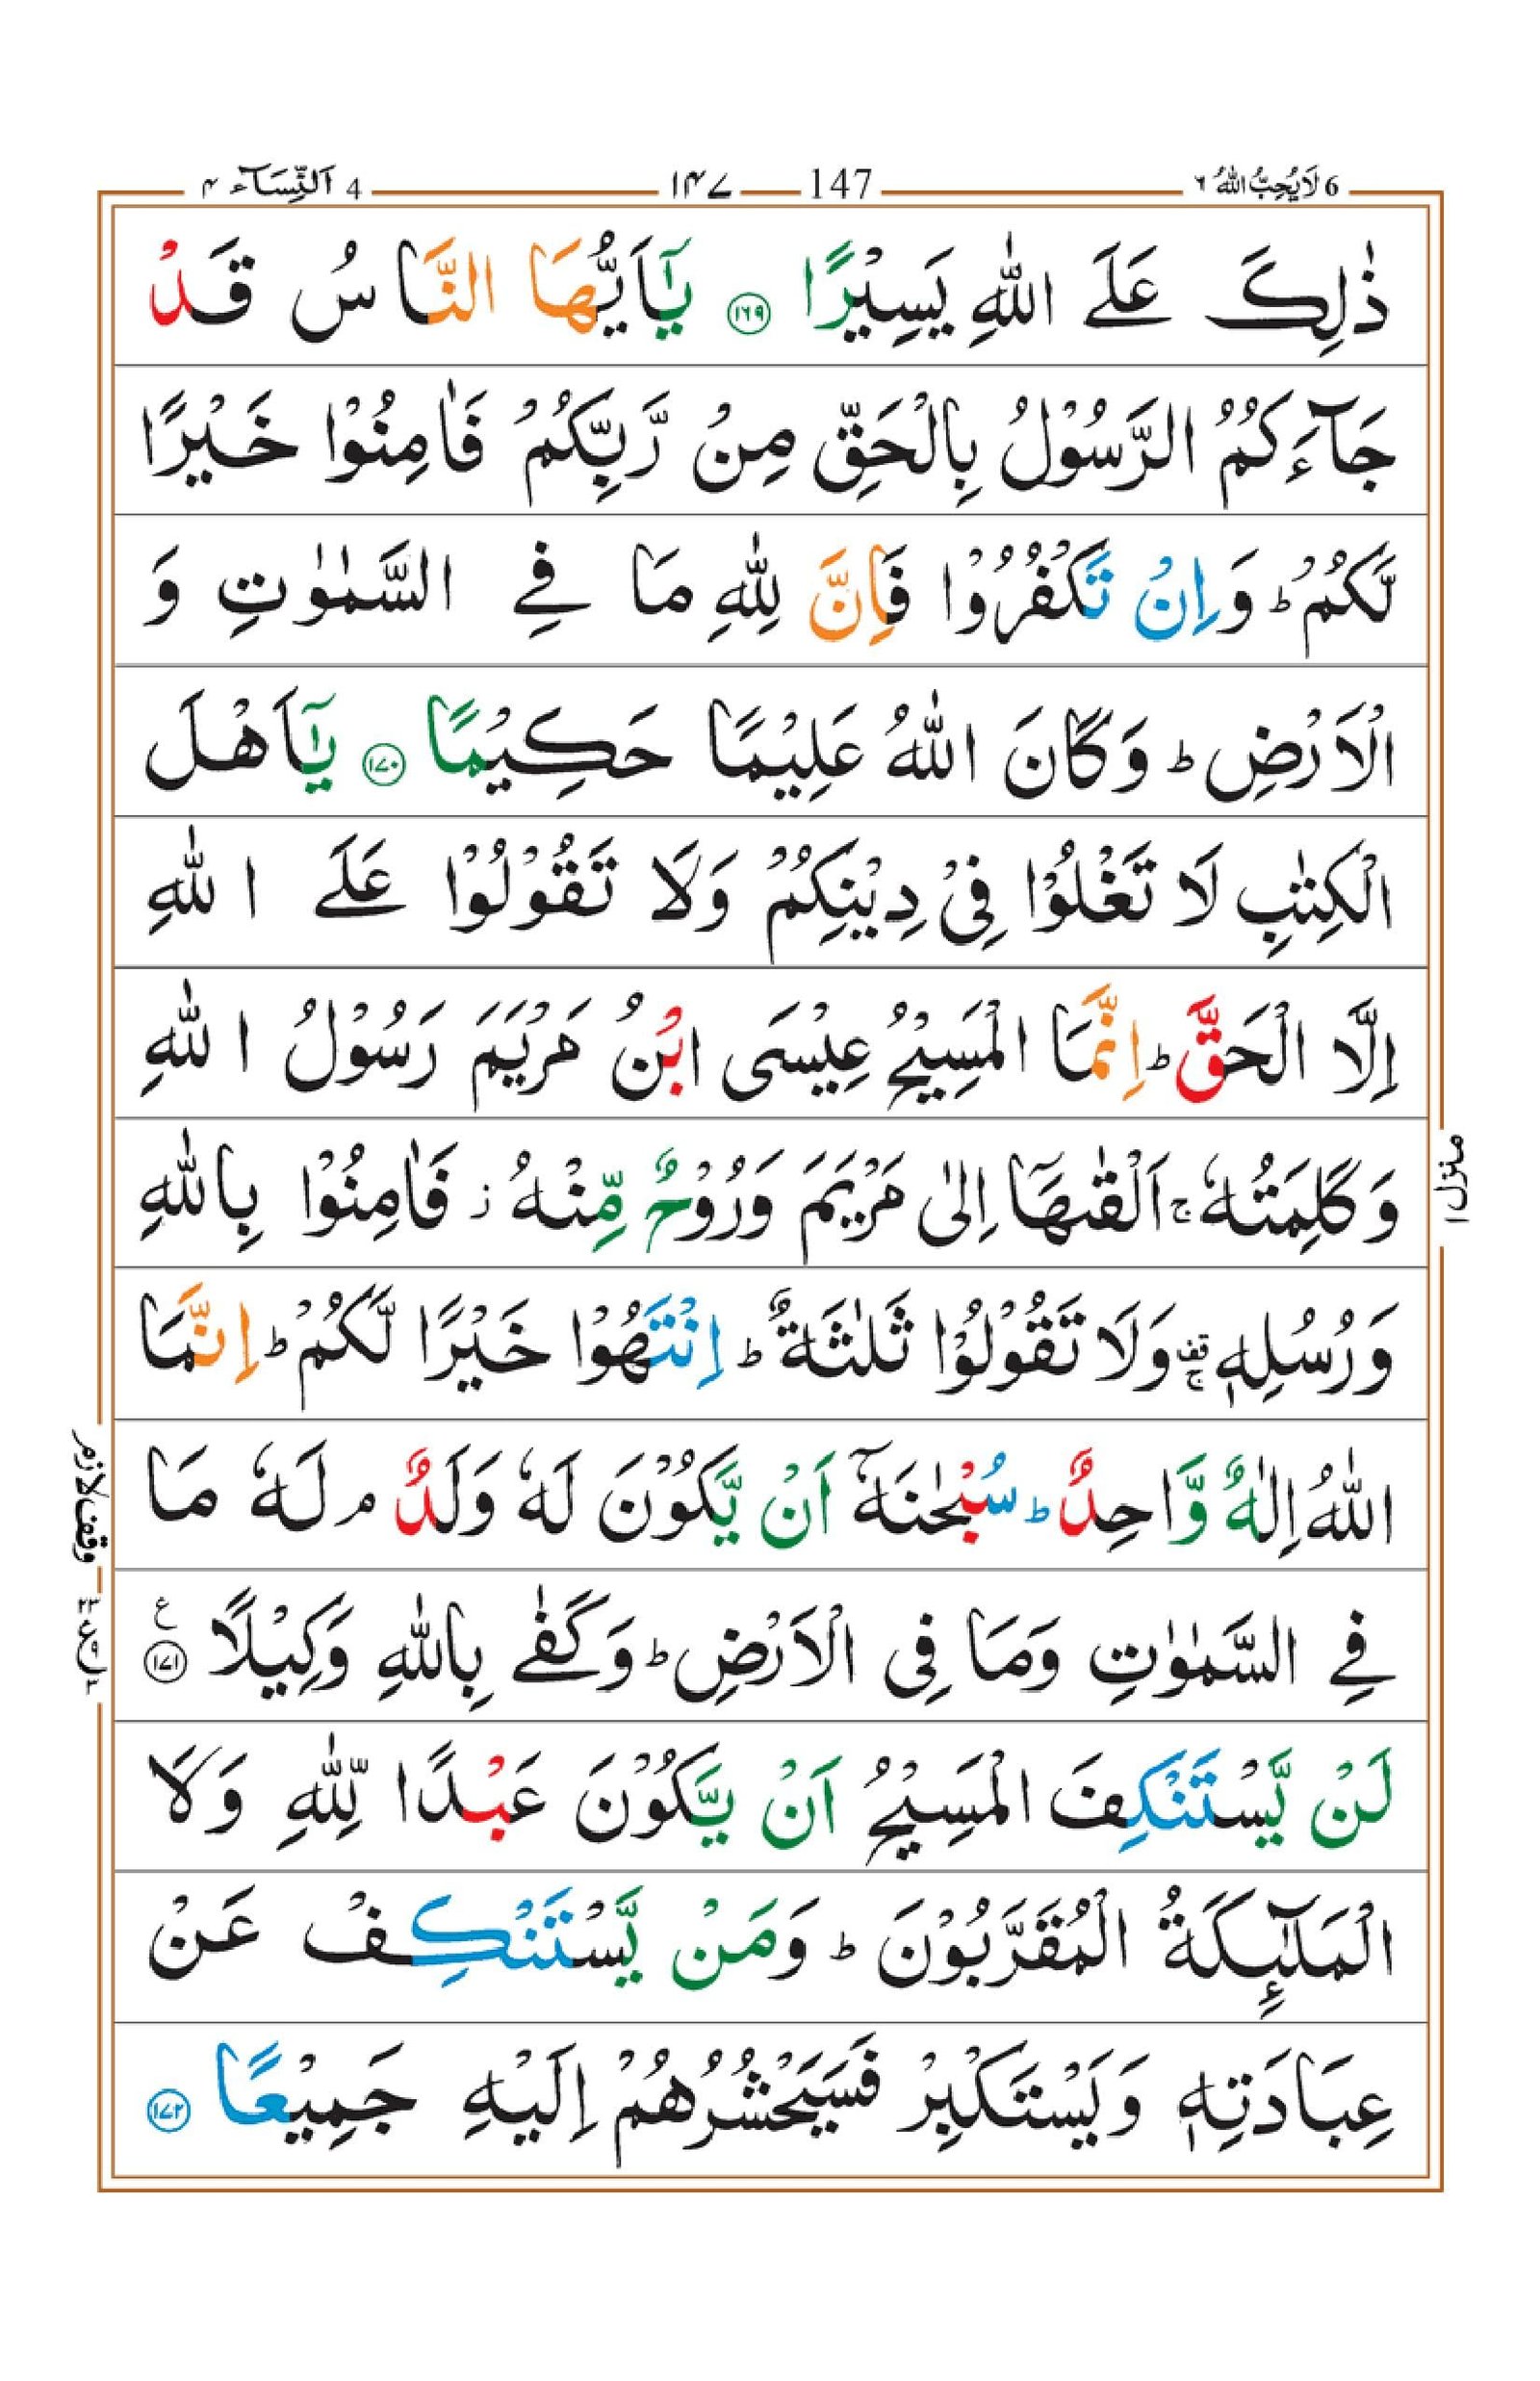 6 لَا یُحِبُّ اللّٰهُ ٦ 147 ١٤٧ 4 اَلنِّسَآء ٤
ذٰلِكَ عَلَى اللّٰهِ يَسِيْرًا ١٦٩ يٰۤاَيُّهَا النَّاسُ قَدْ
جَآءَكُمُ الرَّسُوْلُ بِالْحَقِّ مِنْ رَّبِّكُمْ فَاٰمِنُوْا خَيْرًا
لَّكُمْ ؕ وَاِنْ تَكْفُرُوْا فَاِنَّ لِلّٰهِ مَا فِے السَّمٰوٰتِ وَ
الْاَرْضِ ؕ وَكَانَ اللّٰهُ عَلِيْمًا حَكِيْمًا ١٧٠ يٰۤاَهْلَ
الْكِتٰبِ لَا تَغْلُوْا فِيْ دِيْنِكُمْ وَلَا تَقُوْلُوْا عَلَے اللّٰهِ
اِلَّا الْحَقَّ ؕ اِنَّمَا الْمَسِيْحُ عِيْسَى ابْنُ مَرْيَمَ رَسُوْلُ اللّٰهِ
وَكَلِمَتُهٗ ۚ اَلْقٰىهَاۤ اِلٰى مَرْيَمَ وَرُوْحٌ مِّنْهُ ز فَاٰمِنُوْا بِاللّٰهِ
وَرُسُلِهٖ قف ۚ وَلَا تَقُوْلُوْا ثَلٰثَةٌ ؕ اِنْتَهُوْا خَيْرًا لَّكُمْ ؕ اِنَّمَا
اللّٰهُ اِلٰهٌ وَّاحِدٌ ؕ سُبْحٰنَهٗۤ اَنْ يَّكُوْنَ لَهٗ وَلَدٌ ۘ لَهٗ مَا
فِے السَّمٰوٰتِ وَمَا فِى الْاَرْضِ ؕ وَكَفٰے بِاللّٰهِ وَكِيْلًا ع ١٧١
لَنْ يَّسْتَنْكِفَ الْمَسِيْحُ اَنْ يَّكُوْنَ عَبْدًا لِّلّٰهِ وَلَا
الْمَلٰٓئِكَةُ الْمُقَرَّبُوْنَ ؕ وَمَنْ يَّسْتَنْكِفْ عَنْ
عِبَادَتِهٖ وَيَسْتَكْبِرْ فَسَيَحْشُرُهُمْ اِلَيْهِ جَمِيْعًا ١٧٢
منزل ١
وقف لازم